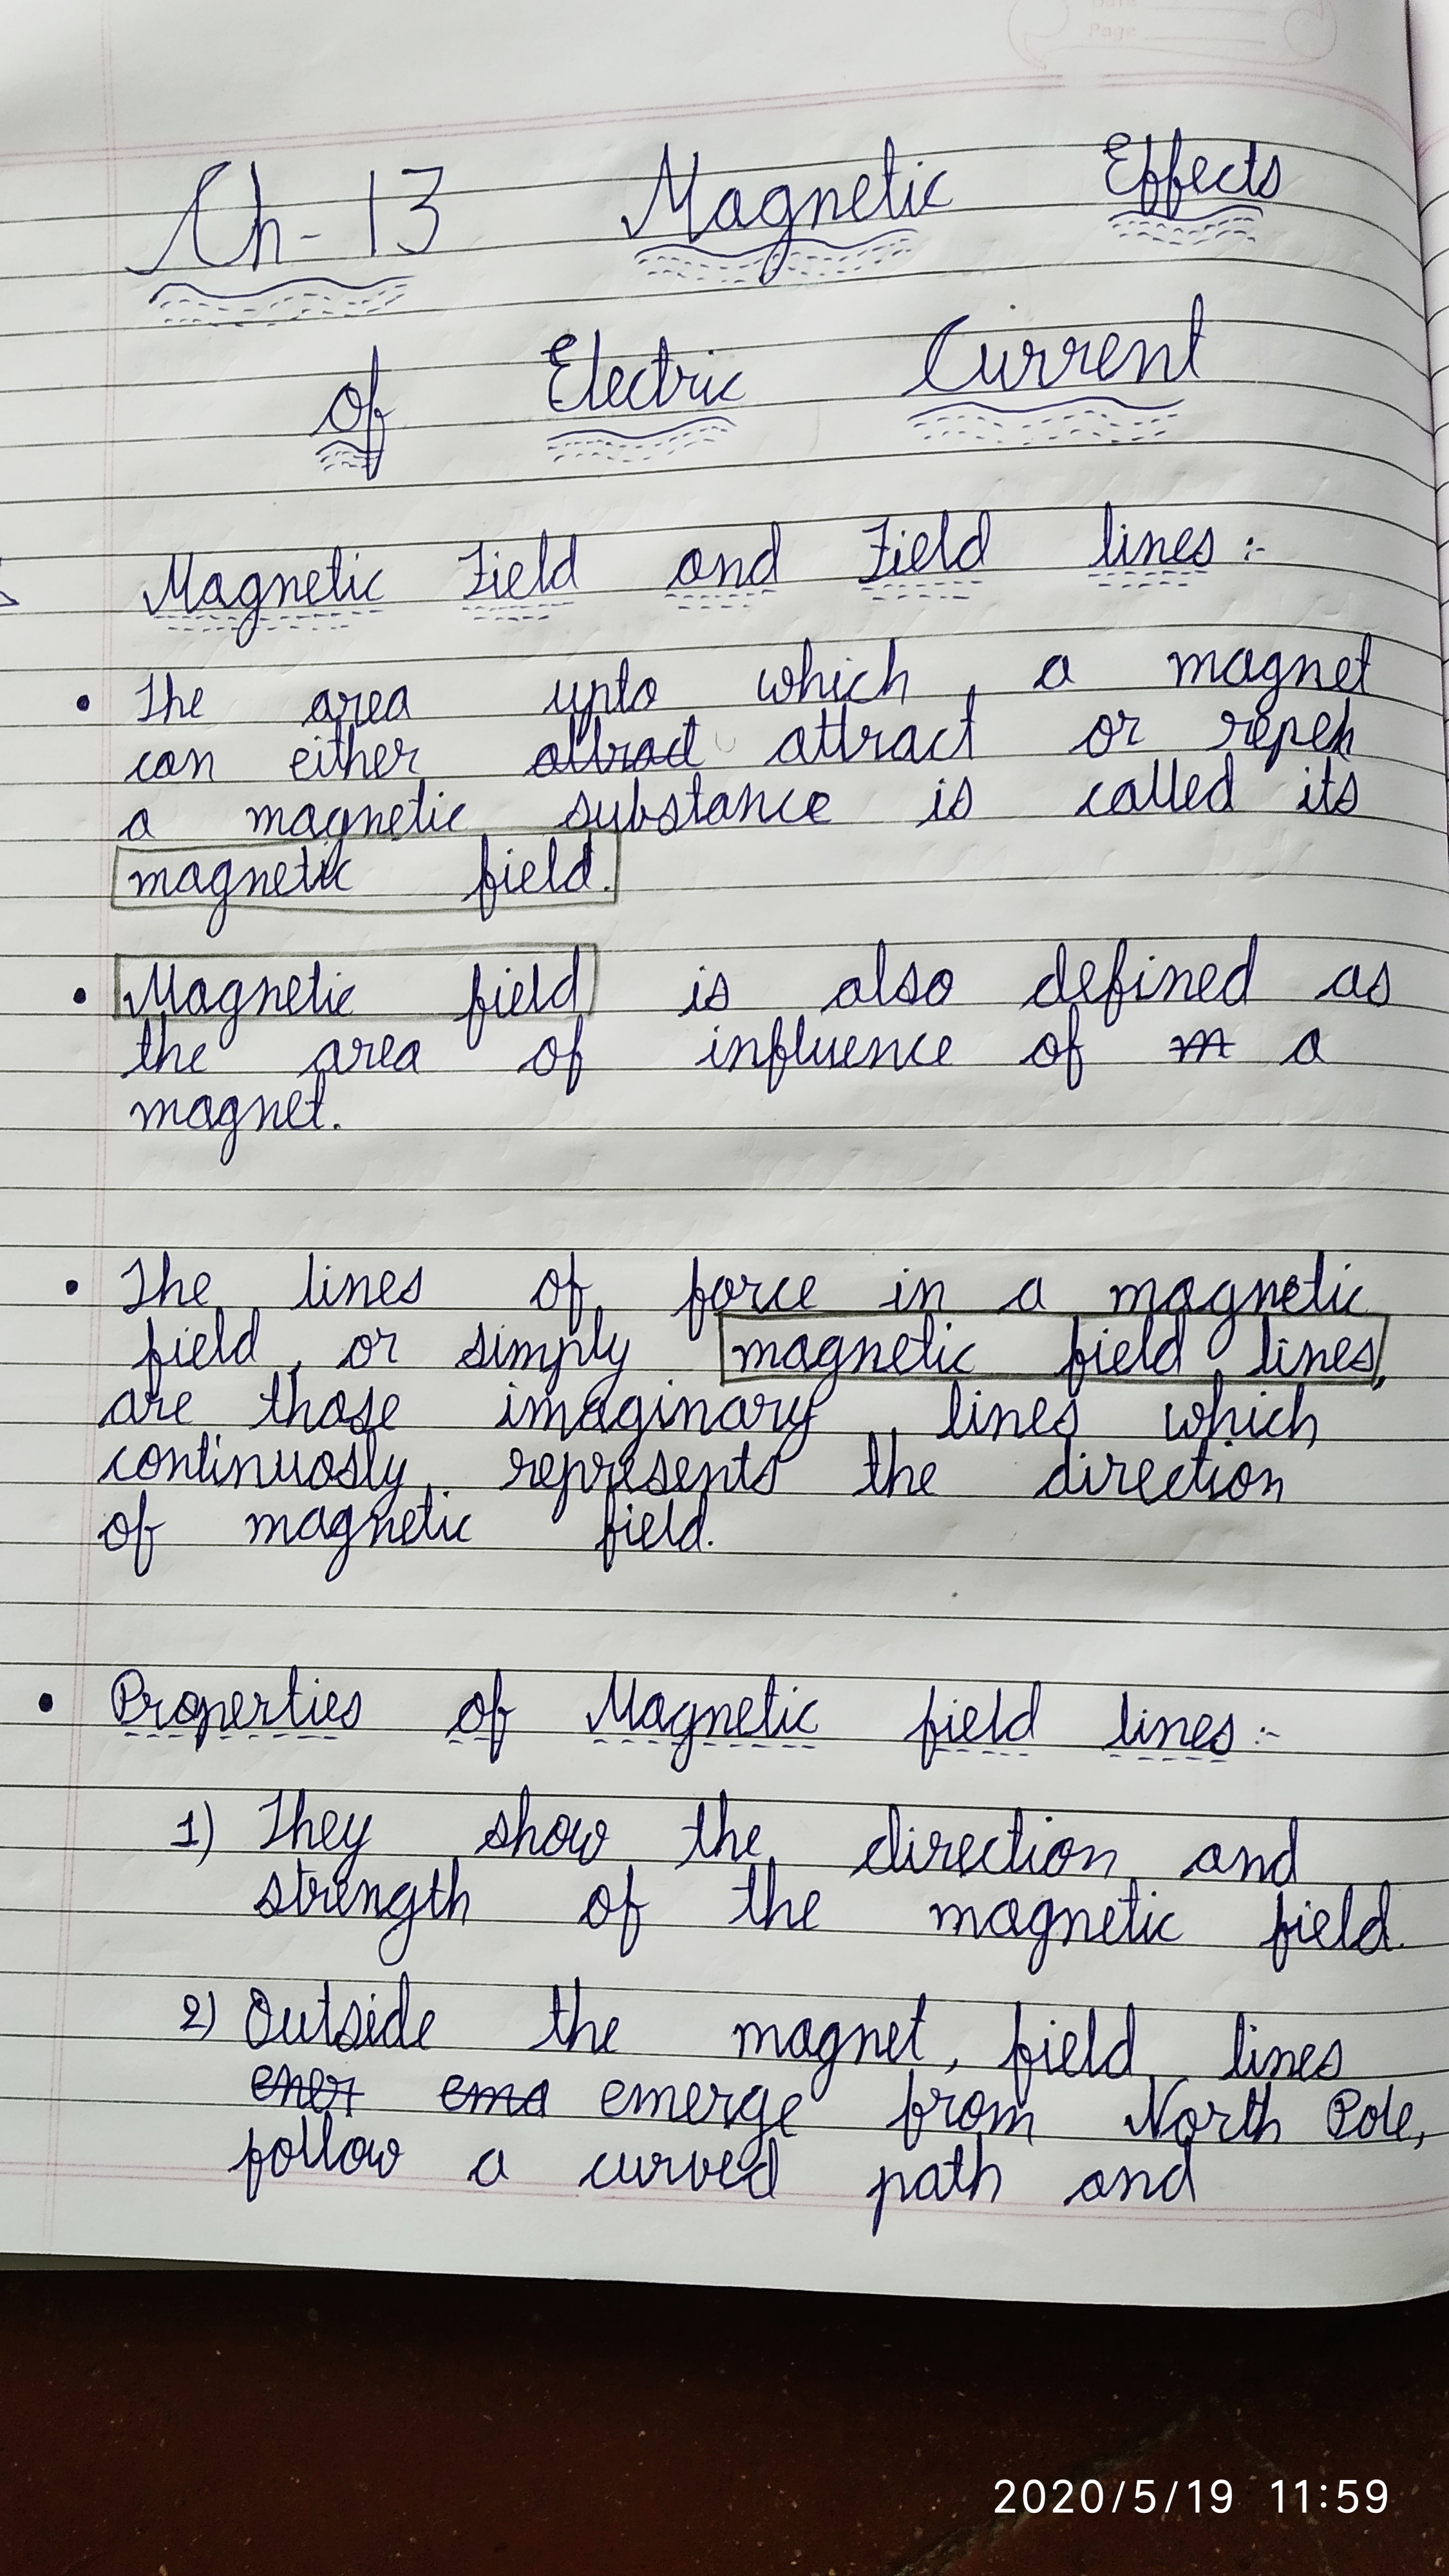 Date
Page
Ch-13 Magnetic Effects
of Electric Current
Magnetic Field and Field lines :-
• The area upto which, a magnet
can either attract attract or repel
a magnetic substance is called its
magnetic field.
• Magnetic field is also defined as
the area of influence of m a
magnet.
• The lines of force in a magnetic
field, or simply magnetic field lines,
are those imaginary lines which
continuosly represents the direction
of magnetic field.
• Properties of Magnetic field lines :-
1) They show the direction and
strength of the magnetic field.
2) Outside the magnet, field lines
ema emerge from North Pole,
follow a curved path and
2020/5/19 11:59